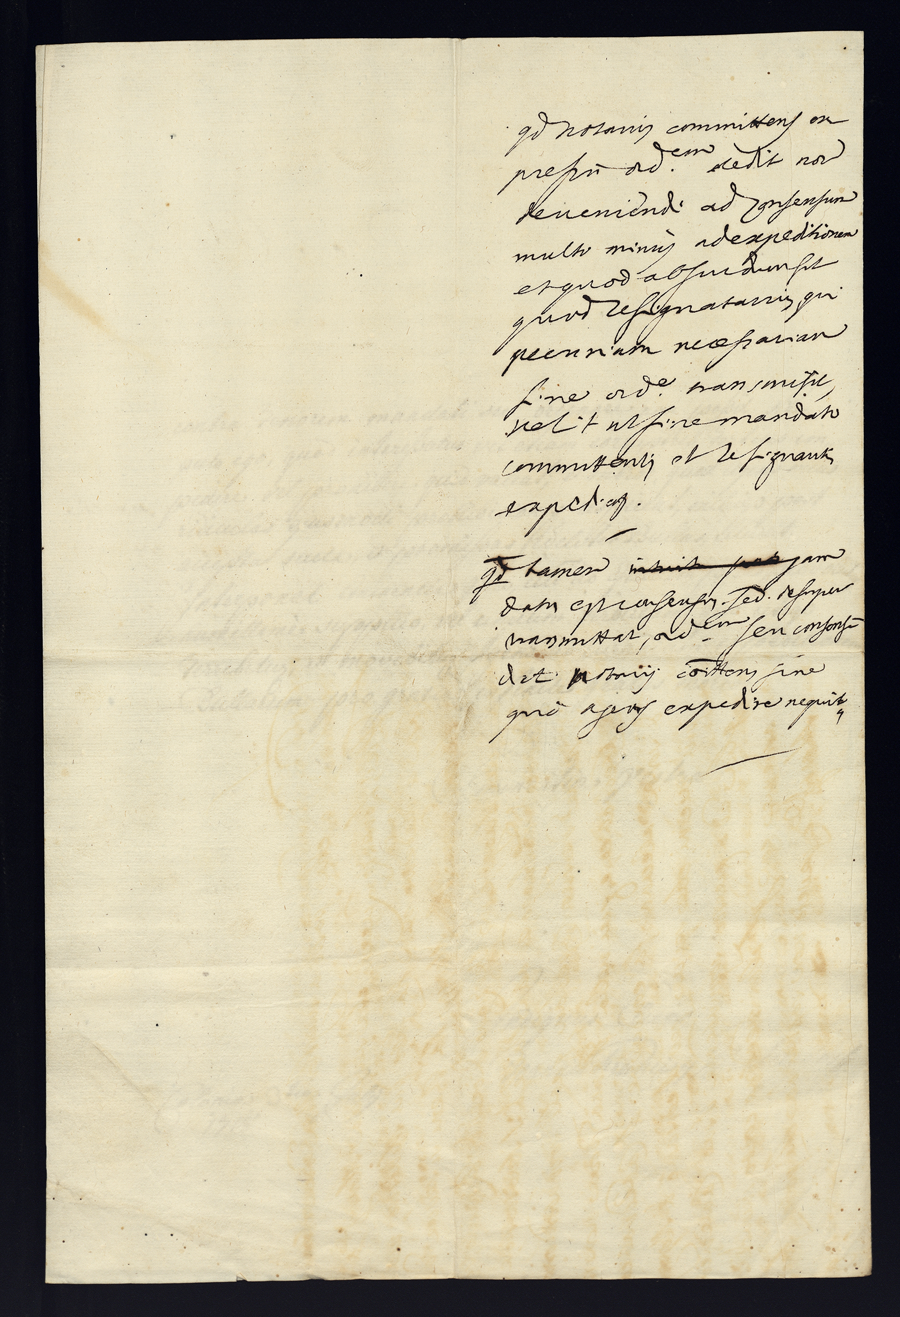 qd notarius committens ex
pressū ord.em dedit non
deveniendi ad consensum
multo minus ad expeditionem
et quod absurdum sit
quod resignatarius, qui
pecuniam necessariam
sine orde. transmisit,
velit ut sine mandato
committentis et resignantis
expediaĩ.
qd tamen jam
datus est consensus. sed. desuper
transmittat, ordem seu consensū
det notarii coīttens sine
quō agens expedire nequit